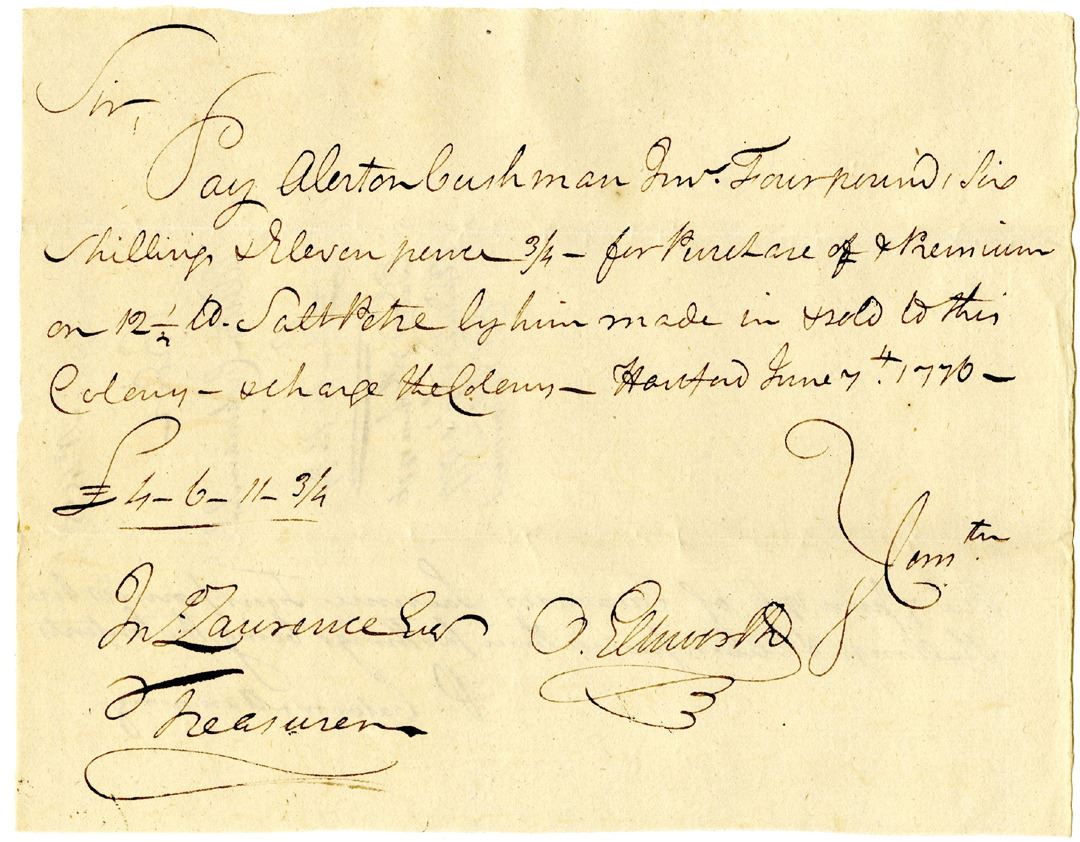 Sir,
Pay Alerton Cushman Junr. Four pound, Six
Shillings & Eleven pence 3/4 – for Purchase of & Premium
on 12 1/2 lb. Salt Petre by him made in & sold to this
Colony – & charge the Colony – Hartford June 7th. 1776 –
£ 4 – 6 – 11 – 3/4
Comtee
Jn Lawrence Esqr
O. Ellsworth
Treasurer